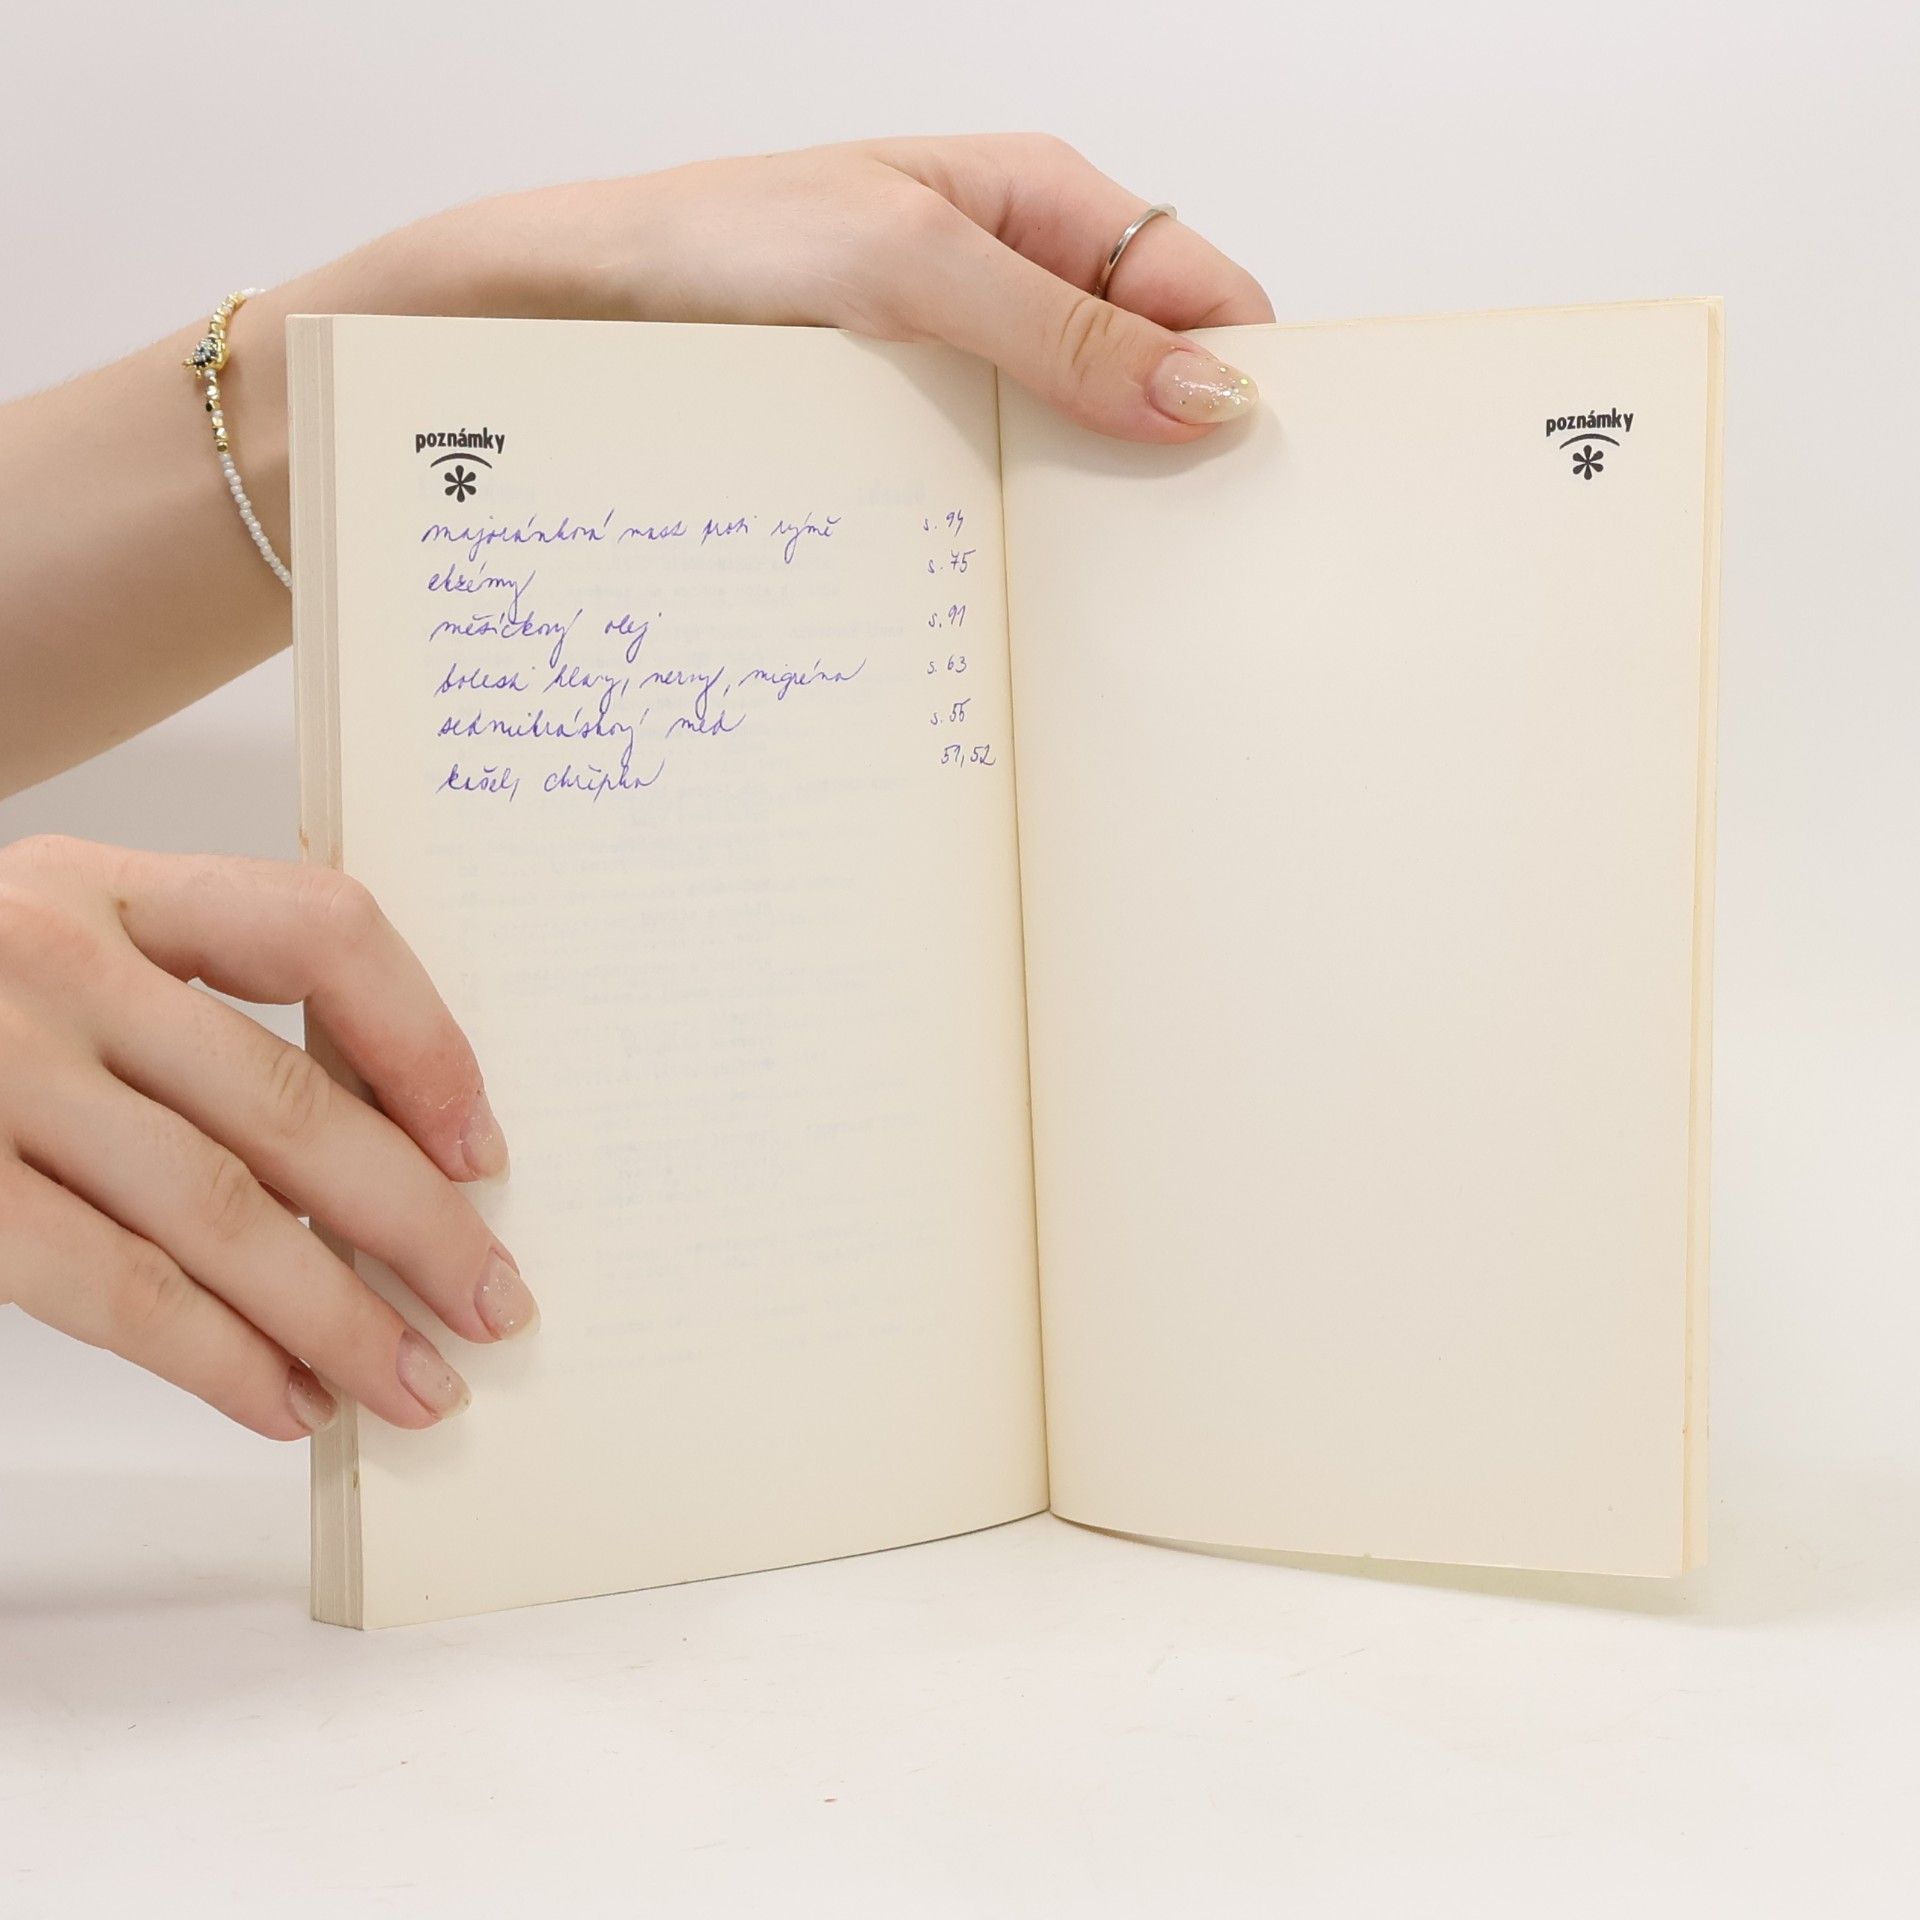 poznámky
majoránková mast proti rýmě s. 94
ekzémy s. 75
měsíčkový olej s. 91
bolesti hlavy, nervy, migréna s. 63
sedmikráskový med s. 55
kašel, chřipka 51, 52
poznámky